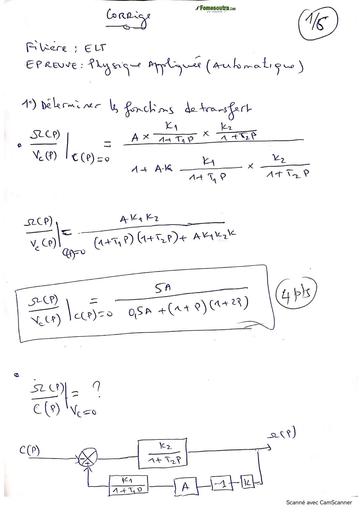 Corrigé
Fomesoutra.com
1/6
Filière : ELT
EPREUVE : Physique Appliquée (Automatique)
1°) Déterminer les fonctions de transfert
• Ω(P)/Vc(P) | C(P)=0 = (A × K1/(1+T1P) × K2/(1+T2P)) / (1 + AK K1/(1+T1P) × K2/(1+T2P))
Ω(P)/Vc(P) | C(P)=0 = A K1 K2 / ((1+T1P)(1+T2P) + A K1 K2 K)
Ω(P)/Vc(P) | C(P)=0 = 5A / (0,5A + (1+P)(1+2P))
4 pts
• Ω(P)/C(P) | Vc=0 = ?
C(P) + + K2/(1+T2P) Ω(P)
K1/(1+T1P) A -1 K
Scanné avec CamScanner